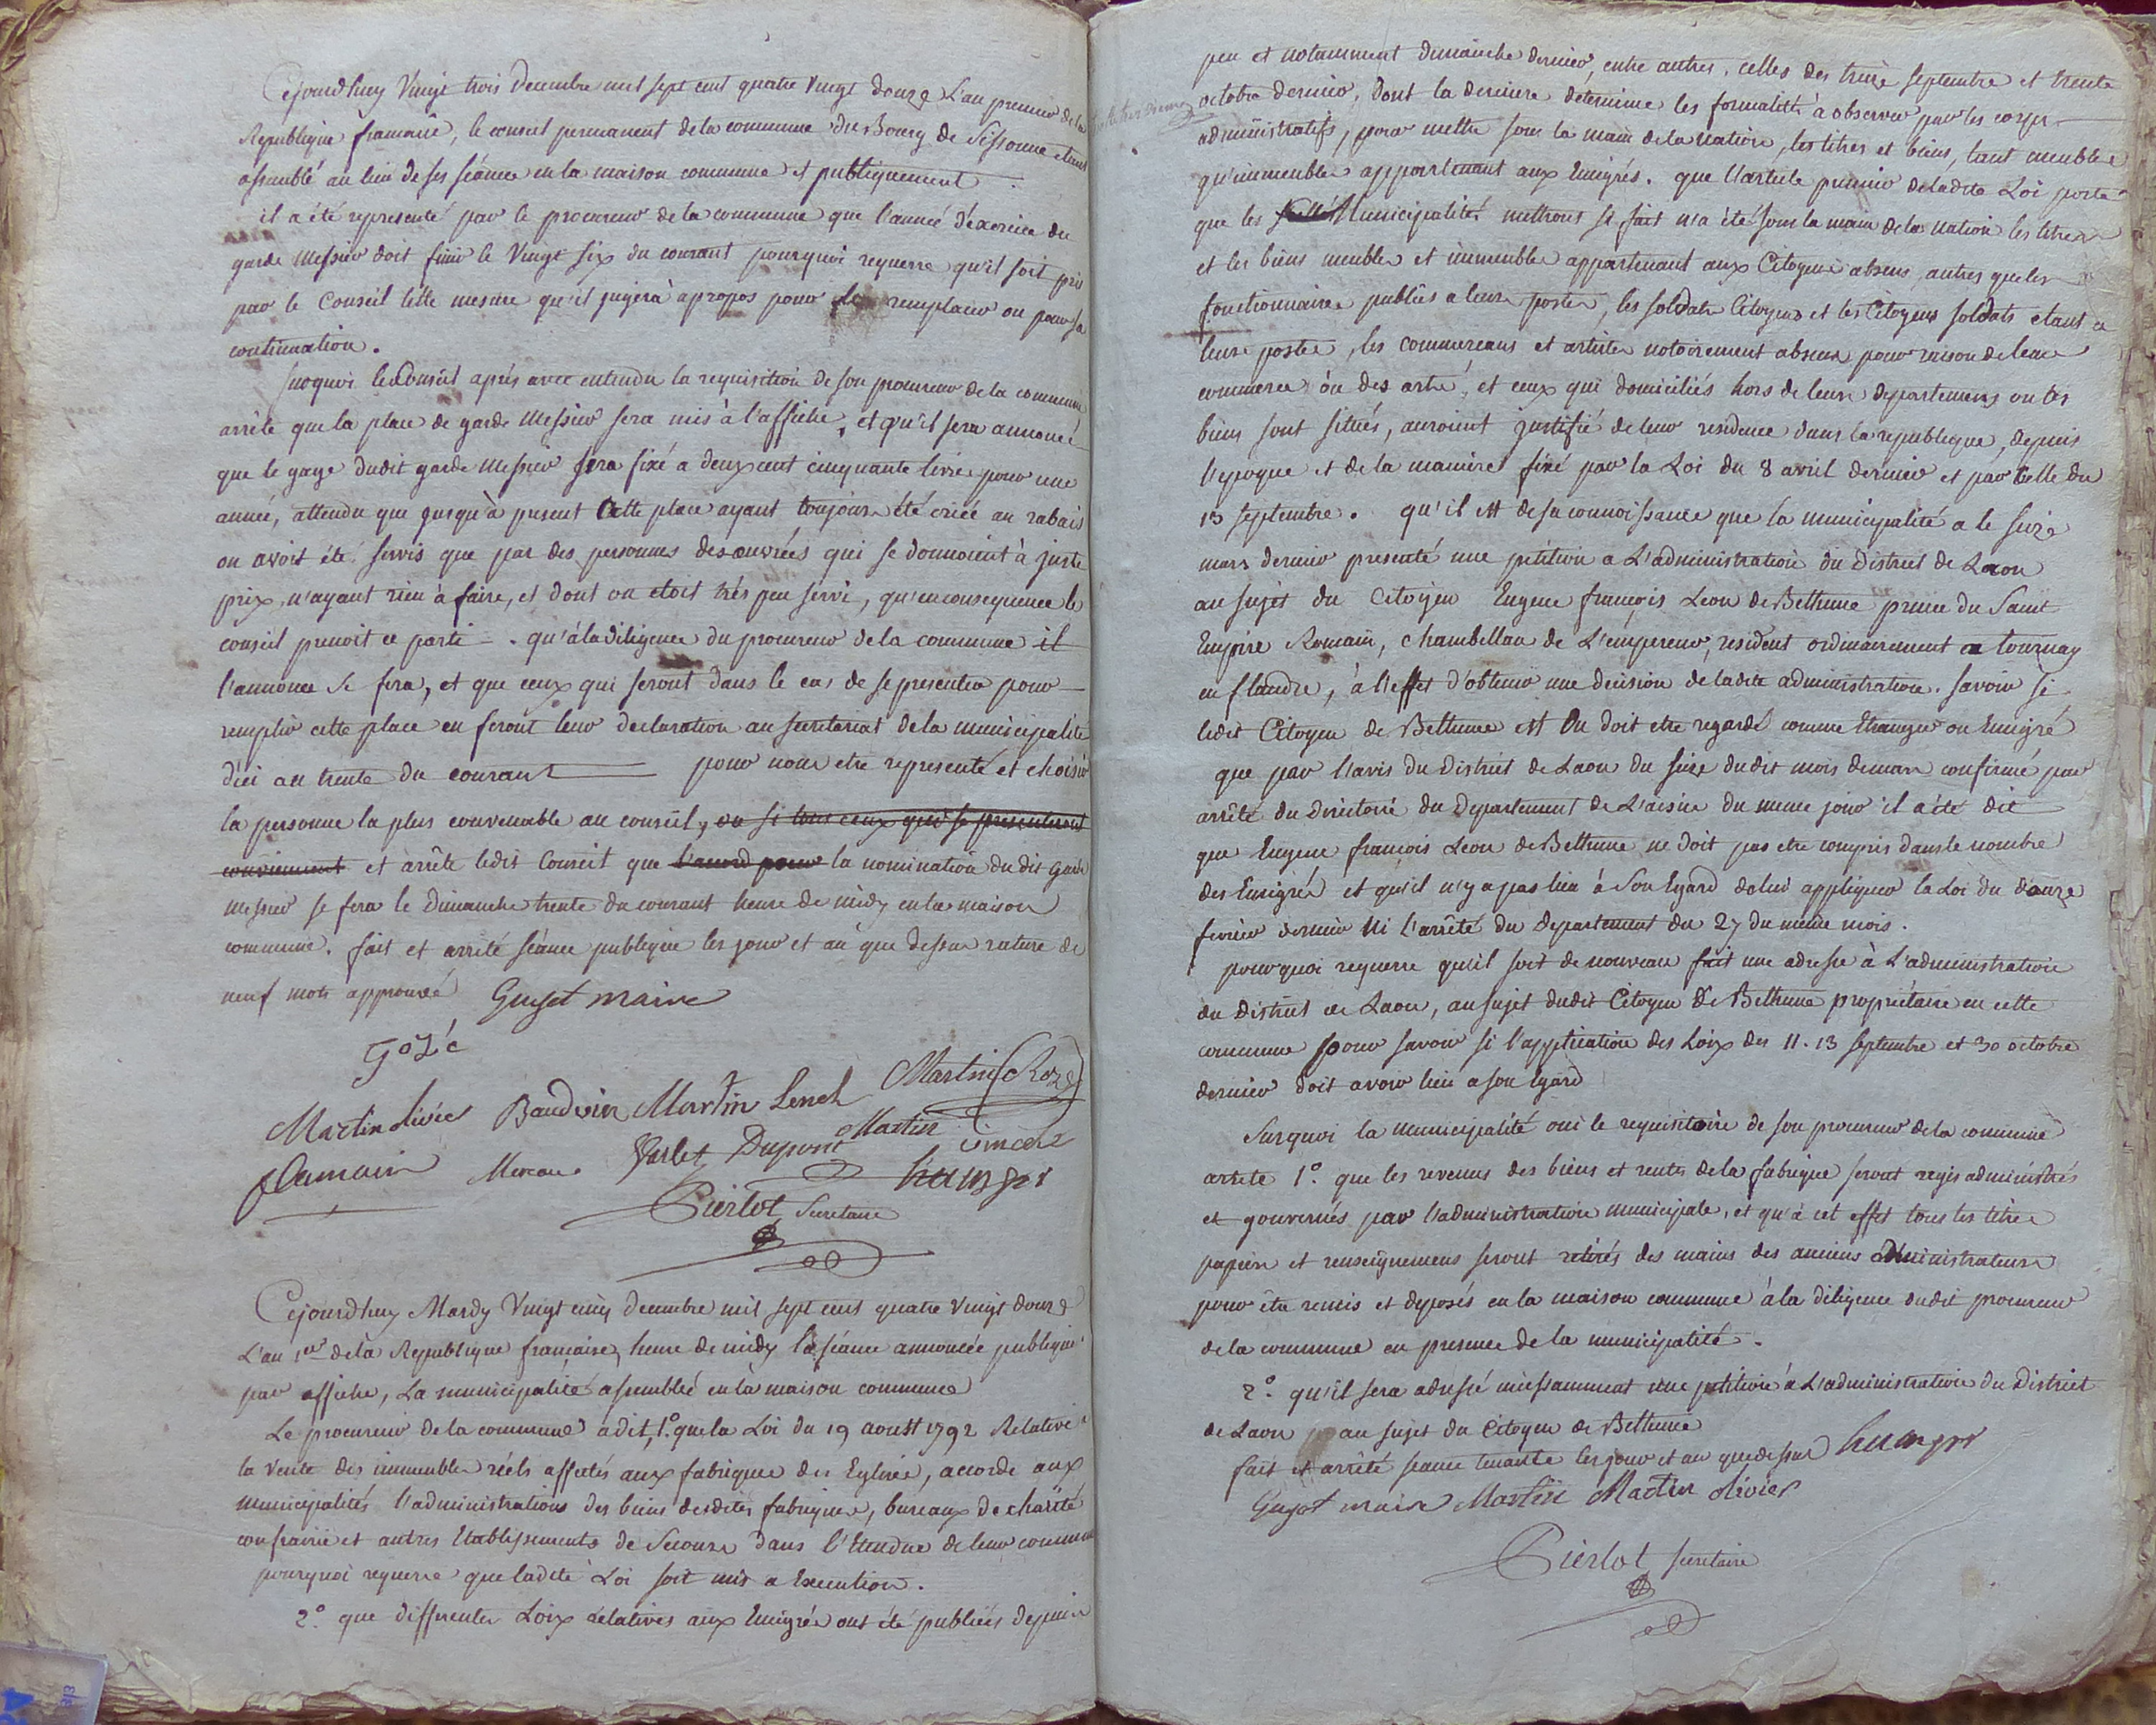 Cejourdhuy Vingt trois Decembre mil sept cent quatre vingt douze L'an premier de la
Republique francaise, le conseil permanent de la commune du Bourg de Sissonne etant
assemblé au lieu de ses séances en la maison commune et publiquement
il a été representé par le procureur de la commune que l'année d'éxercice du
garde Messier doit finir le Vingt six du courant pourquoi requerre qu'il soit pris
par le Conseil telle mesure qu'il jugera à propos pour le remplacer ou pour sa
continuation.
Suoquoi le Conseil aprés avoir entendu la requisition de son procureur de la commune
arrête que la place de garde Messier sera mis à l'affiche, et qu'il sera annoncé
que le gage dudit garde Messier sera fixé a deux cent cinquante livres pour une
année, attendu que jusqu'à present Cette place ayant toujours été criée au rabais
on avoit été servis que par des personnes desœuvrées qui se donnoient à juste
prix, n'ayant rien à faire, et dont on etoit trés peu servi, qu'en consequence le
conseil prenoit ce parti. qu'à la diligence du procureur de la commune il
l'annonce se fera, et que ceux qui seront dans le cas de se presenter pour
remplir cette place en feront leur declaration au secretariat de la municipalité
d'ici au trente du courant pour nous etre representé et choisir
la personne la plus convenable au conseil, ou si tous ceux qui se presenteront
conviennent et arrête ledit Conseil que l'accord pour la nomination du dit garde
Messier se fera le Dimanche trente du courant heure de midy en la maison
commune. fait et arrété séance publique les jour et an que dessus rature de
neuf mots approuvée Guyot maire
Gozé
Martin olivier Baudoin Martin Lench Martin Roze
flamain Moreau Varlet Dupont Martin
huinger
Pierlot Secretaire
Cejourdhuy Mardy Vingt cinq decembre mil sept cens quatre vingt douze
L'an 1er de la Republique française, heure de midy la séance annoncée publique
par affiche, La municipalité assemblée en la maison commune
Le procureur de la commune a dit, 1.° que la Loi du 19 aoust 1792 Relative a
la vente des immeubles réels affectés aux fabriques des Eglises, accorde aux
municipalités l'administrations des biens desdites fabriques, bureaux de charité
confrairie et autres Etablissements de Secours dans l'Etendue de leur commune
pourquoi requerre que ladite Loi soit mis a Execution.
2.° que differentes Loix relatives aux Emigrés ont été publiées depuis
peu et notamment dimanche dernier, entre autres, celles des treize septembre et trente
octobre dernier, Dont la derniere determine les formalités à observer par les corps
administratifs, pour mettre sous la main de la nation, les titres et biens, tant meubles
qu'immeubles appartenant aux Emigrés. que l'article premier de ladite Loi porte
que les Municipalités mettront si fait n'a été sous la main de la nation les titres
et les biens meubles et immeubles appartenant aux Citoyens absens, autres que les
fonctionnaires publics a leurs postes, les soldats Citoyens et les Citoyens soldats etant a
leurs postes, les commercans et artistes notoirement absens pour raison de leur
commerce ou des arts, et ceux qui domiciliés hors de leurs departemens ou les
biens sont situés, auroient justifié de leur residence dans la republique, depuis
l'epoque et de la maniere fixé par la Loi du 8 avril dernier et par celle du
13 septembre. qu'il est de sa connoissance que la municipalité a le seize
mars dernier presenté une petition a L'administration du District de Laon
au sujet du Citoyen Eugene françois Leon de Bethune prince du Saint
Empire Romain, chambellan de L'empereur, resident ordinairement a tournay
en flandre, à l'effet d'obtenir une decision de ladite administration. savoir si
ledit Citoyen de Bethune est Ou doit etre regardé comme Etranger ou Emigré
que par l'avis du District de Laon du seize dudit mois de mars confirmé par
arrêté du Directoire du Departement de L'aisne du meme jour il a été dit
que Eugene francois Léon de Bethune ne doit pas etre compris dans le nombre
des Emigrés et qu'il n'y a pas lieu à Son Egard de lui appliquer la Loi du douze
fevrier dernier Ni l'arrêté du Departement du 27 du meme mois.
pourquoi requerre qu'il soit de nouveau fait une adresse à L'administration
du District de Laon, au sujet dudit Citoyen de Bethune propriétaire en cette
commune pour savoir si l'application des Loix des 11. 13 septembre et 30 octobre
dernier doit avoir lieu a son Egard
Surquoi la municipalité oui le requisitoire de son procureur de la commune
arrete 1.° que les revenus des biens et rentes de la fabrique seront regis administrés
et gouvernés par l'administration municipale, et qu'à cet effet tous les titres
papiers et renseignemens seront retirés des mains des anciens administrateurs
pour être remis et déposés en la maison commune à la diligence dudit procureur
de la commune en presence de la municipalité.
2.° qu'il sera adressé incessamment une petition à L'administration du District
de Laon au sujet du Citoyen de Bethune
fait et arrêté seance tenante les jour et an que dessus huinger
Guyot maire Martin Martin olivier
Pierlot secretaire